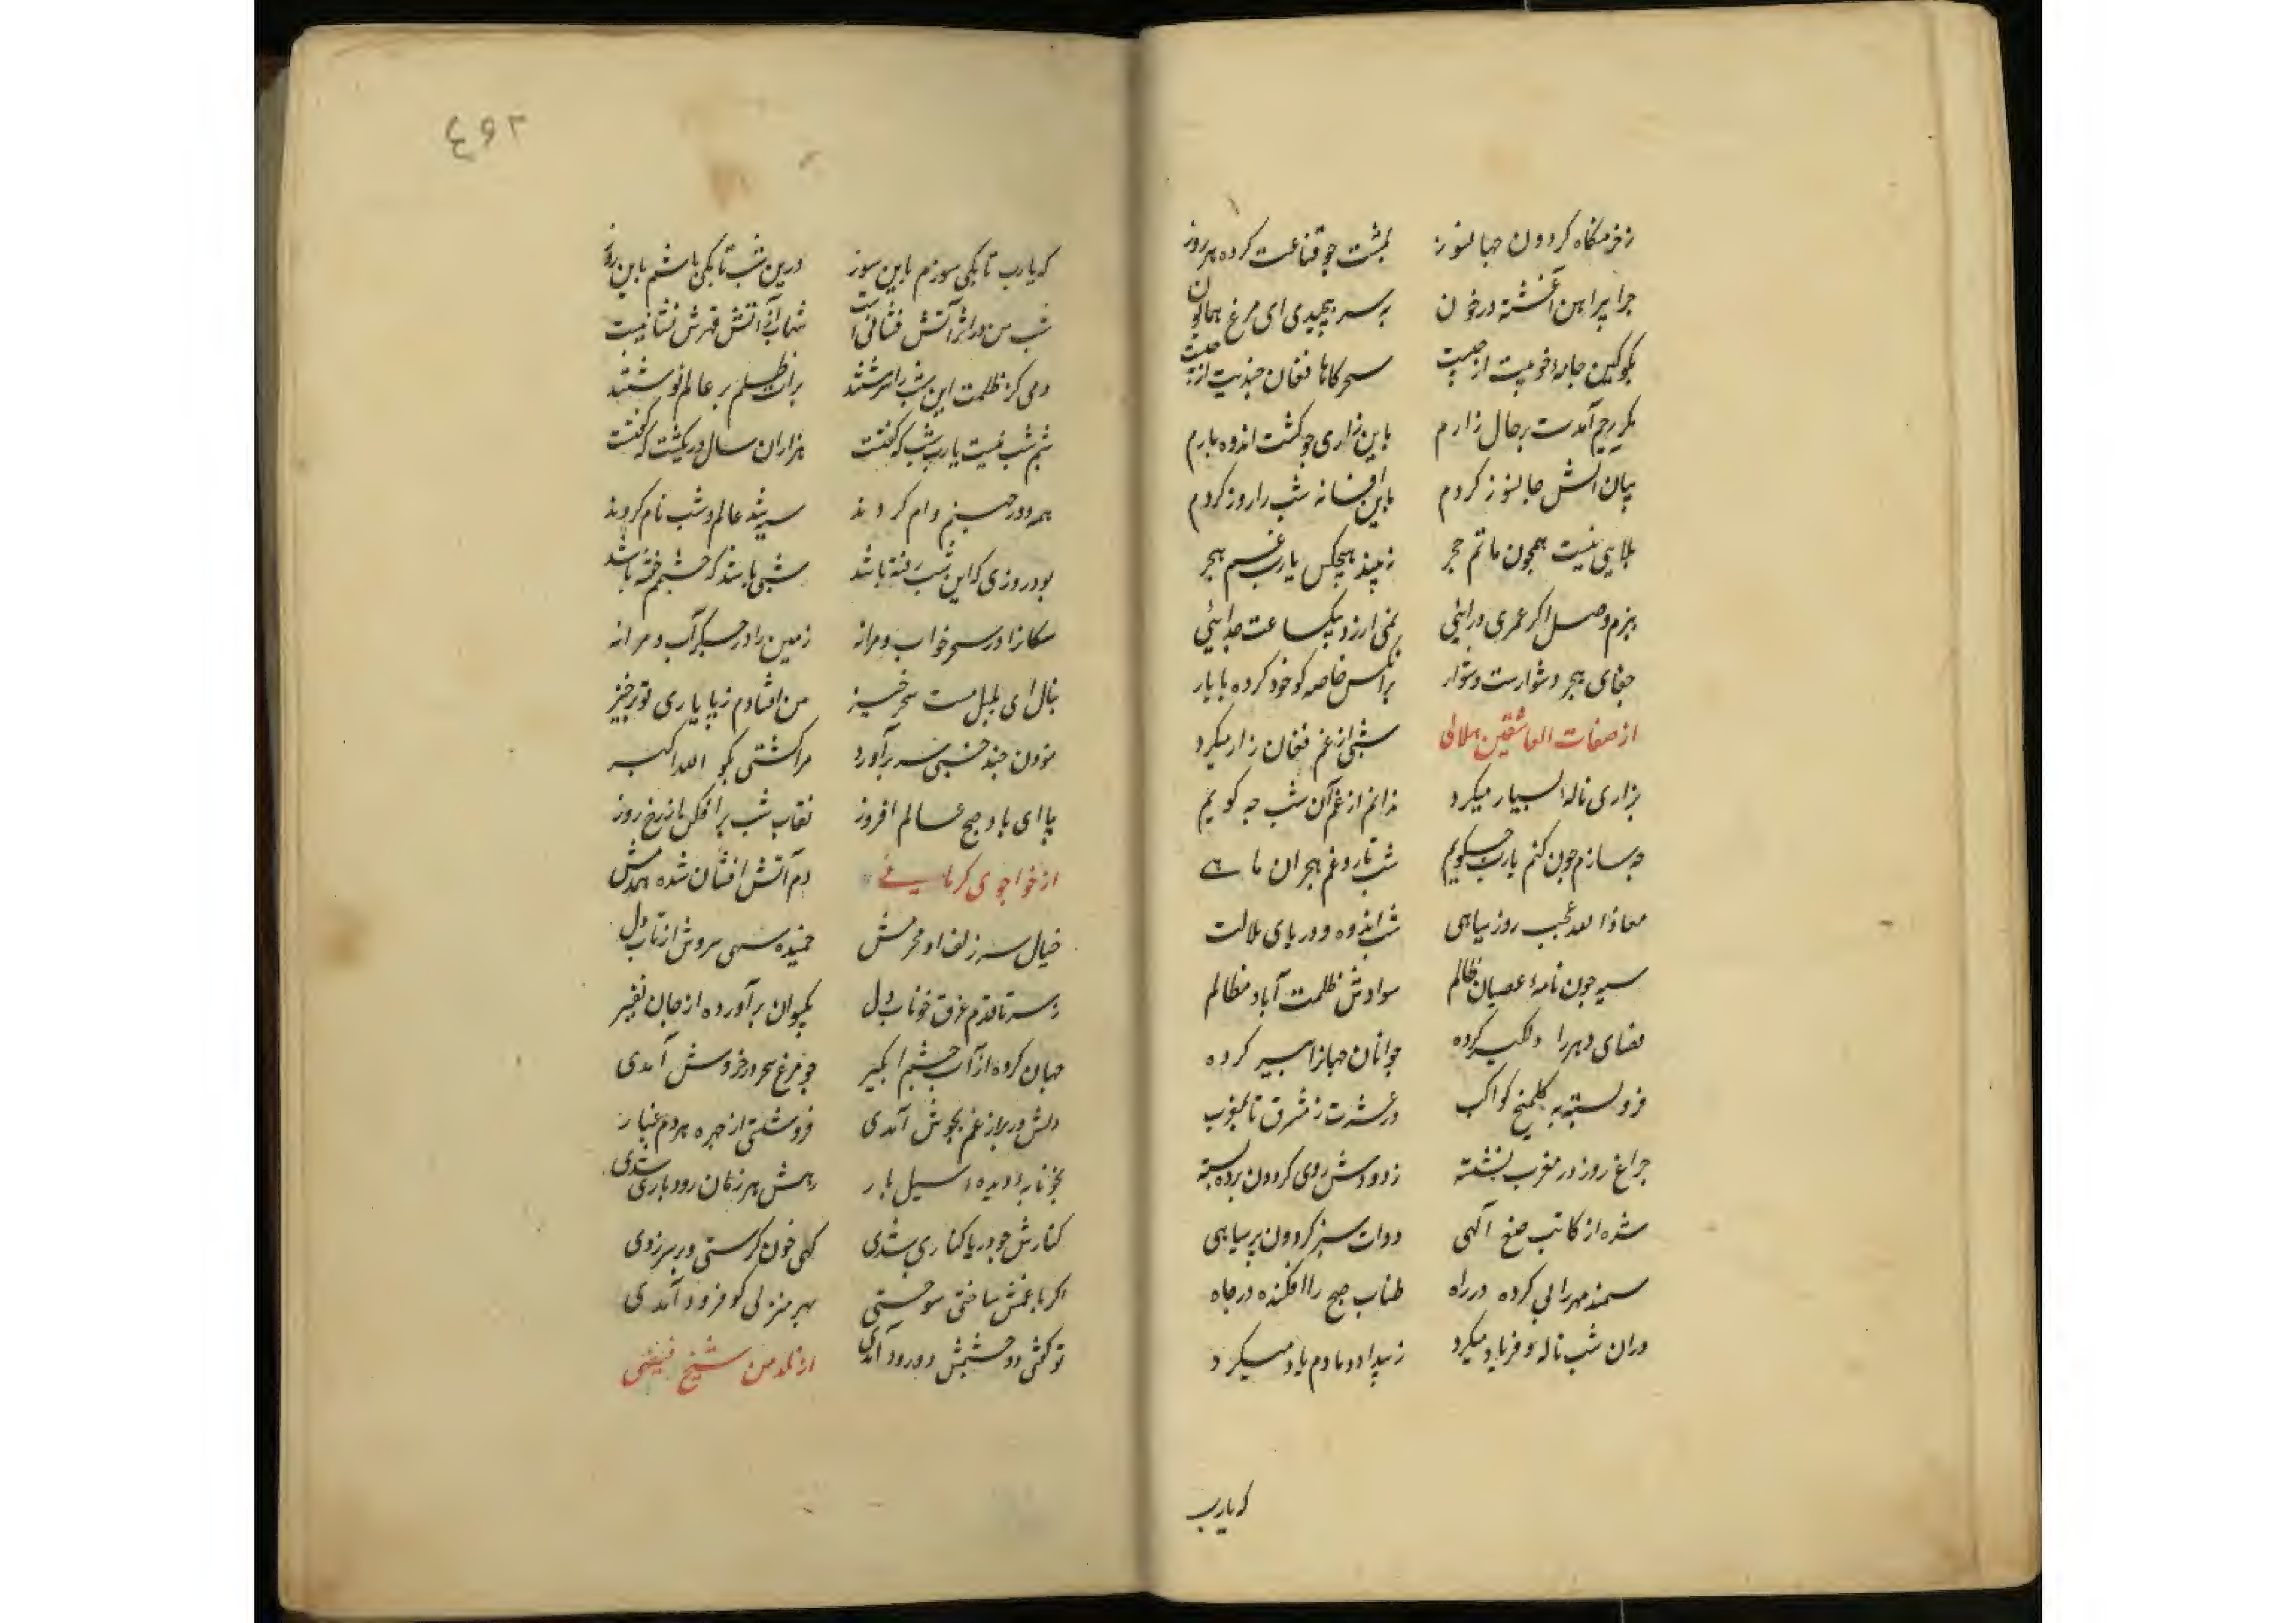 زخرمنگاه کردون جهانسوز بمشت جو قناعت کرده هر روز
چرا پراهن آغشته در خون بر سر پیچیدی ای مرغ همایون
بکو کین جامه خونیت از چیست سحرکاها فغان چندیت از چیست
مکر رحم آمدست برحال زارم باین زاری جو کشت اندوه بارم
بیان آتش جانسوز کردم باین افسانه شب را روز کردم
بلایی نیست همچون ماتم هجر نبیند هیچکس یارب غم هجر
ببزم وصل اکر عمری درایی نمی ارزد بیکساعت جدایئی
جفای هجر دشوارست دشوار بر انکس خاصه کو خو کرده با یار
از صفات العاشقین هلالی شبی از غم فغان زار میکرد
بزاری ناله بسیار میکرد ندانم از غم آن شب چه کویم
چه سازم چون کنم یارب چکویم شب تار و غم هجران ماهی
معاذا لله عجب روز سیاهی شب اندوه و دریای ملالت
سیه چون نامهٔ عصیان ظالم سوادش ظلمت آباد مظالم
فضای دهر را دلکیر کرده جوانان جهانرا پیر کرده
فرو بسته به کلمیخ کواکب در عشرت ز مشرق تا بمغرب
چراغ روز در مغرب نشسته ز دودش روی کردون پرده بسته
شده از کاتب صنع آلهی دوات سبز کردون پر سیاهی
سمند مهر را پی کرده در راه طناب صبح را افکنده در چاه
دران شب ناله و فریاد میکرد ز بیداد دمادم یاد میکرد
که یارب
۲۶۴
که یارب تا بکی سوزم باین سوز درین شب تا بکی باشم باین روز
شب من در اثر آتش فشانی است شهابی آتش قهرش نشانیست
دمی کز ظلمت این شب را سرشتند برات ظلم بر عالم نوشتند
شبم شب نیست یارب شب که کفتت هزاران سال در یکشب که کفتت
همه دود جهنم وام کردند سیه شد عالم و شب نام کردند
بود روزی که این شب رفته باشد شبی باشد که چشمم خفته باشد
سکانرا در سحر خواب و مرا نه زمین را در جکر آب و مرا نه
بنال ای بلبل مست سحر خیز من افتادم ز پا یاری تو برخیز
موذن چند خسبی سر برآور مرا کشتی بکو الله اکبر
بیا ای باد صبح عالم افروز نقاب شب برافکن از رخ روز
از خواجوی کرمانی دم آتش افشان شده همدمش
خیال سر زلف او محرمش خمیده سهی سروش از تاب دل
ز سر تا قدم غرق خوناب دل بکیوان برآورده از جان نفیر
جهان کرده از آب چشم ابکیر چو مرغ سحر در خروش آمدی
دلش در بر از غم بجوش آمدی فرو شستی از چهره هر دم غبار
بخونابهٔ دیدهٔ سیل بار رهش هر زمان رودباری شدی
کنارش چو دریا کناری شدی کهی خون کرستی و بر سر زدی
اکر با غمش ساختی سوختی بهر منزلی کو فرود آمدی
تو کفتی دو چشمش دو رود آمدی از نلدمن شیخ فیضی